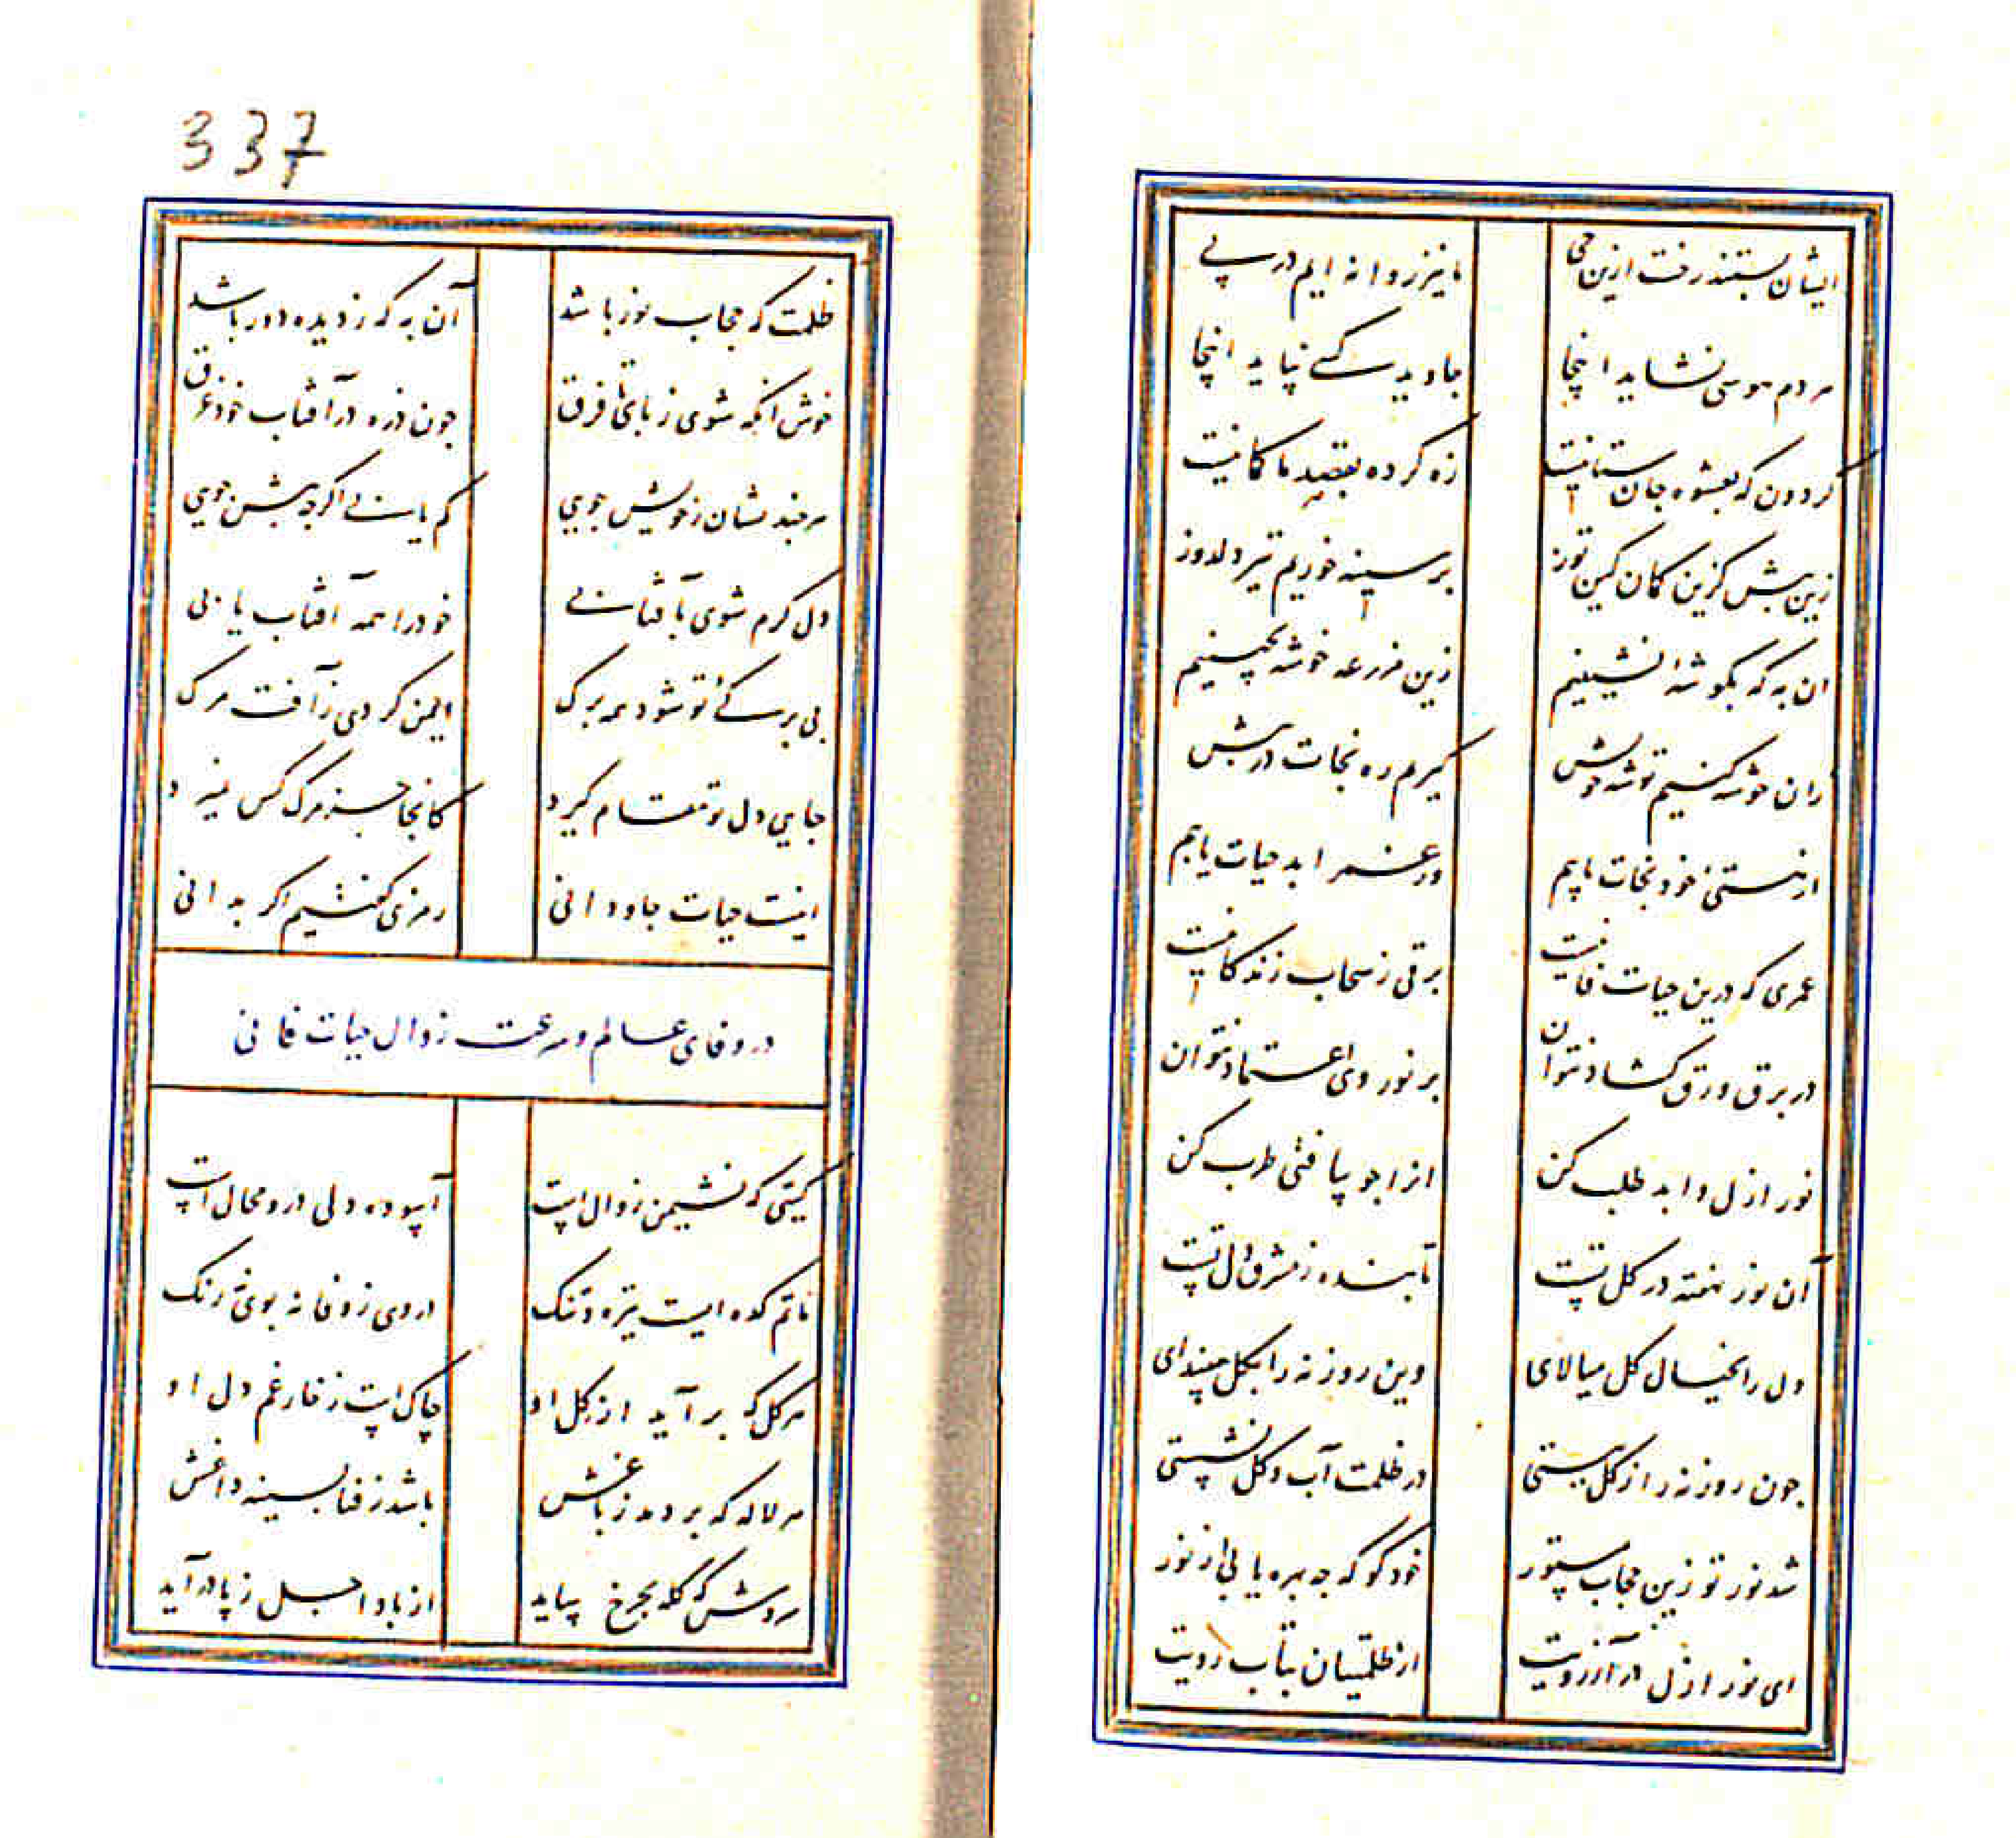 ایشان بستند رخت ازین حی ما نیز روانه ایم در پی
مردم هوسی نشاید اینجا جاوید کسی نپاید اینجا
کردون که بعشوه جان ستانیست زه کرده بقصد ما کمانیست
زین پیش کزین کمان کین توز بر سینه خوریم تیر دلدوز
ان به که بکوشه نشینیم زین مزرعه خوشه بچینیم
زان خوشه کنیم توشه خویش کیریم ره نجات در پیش
از هستی خود نجات یابیم در عمر ابد حیات یابیم
عمری که درین حیات فانیست برقی ز سحاب زندکانیست
در برق ورق کشاد نتوان بر نور وی اعتماد نتوان
نور ازل و ابد طلب کن انرا چو بیافتی طرب کن
آن نور نهفته در کل تست تابنده ز مشرق دل تست
دل را بخیال کل میالای وین روزنه را بکل میندای
چون روزنه را ز کل ببستی در ظلمت آب و کل نشستی
شد نور تو زین حجاب مستور خود کو که چه بهره یابی از نور
ای نور ازل در آرزویت از ظلمتیان بتاب رویت
337
ظلمت که حجاب نور باشد آن به که ز دیده دور باشد
خوش آنکه شوی ز پای تا فرق چون ذره در آفتاب خود غرق
هر چند نشان ز خویش جویی کم یابی اکر چه بیش جویی
دل کرم شوی بآفتابی خود را همه آفتاب یابی
بی برکی تو شود همه برک ایمن کردی ز آفت مرک
جایی دل تو مقام کیرد کانجا جز مرک کس نمیرد
اینست حیات جاودانی رمزی کفتیم اکر بدانی
در وفای عالم و سرعت زوال حیات فانی
کیتی که نشیمن زوال است آسوده دلی درو محال است
ماتم کده ایست تیره و تنک در وی ز وفا نه بوی نه رنک
هر کل که بر آید از کل او چاک است ز خار غم دل او
هر لاله که بر دمد ز باغش باشد ز فنا بسینه داغش
سروش که کله بچرخ ساید از باد اجل ز پا در آید